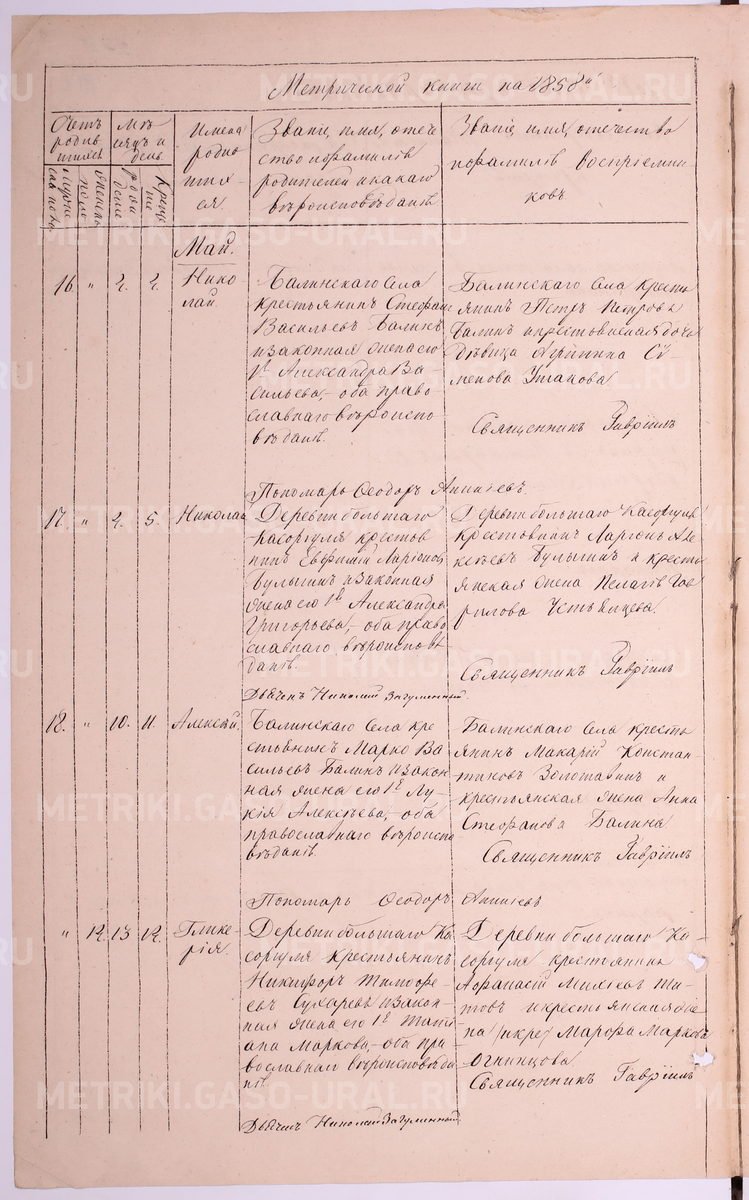 Метрической книги на 1858й
Счетъ родив шихся
Мѣ сяцъ и день
Имена родив ших ся
Званіе, имя, отече
ство и фамилія
родителей и какаго
вѣроисповѣданія.
Званіе, имя, отечество
и фамилія воспріемни
ковъ
Мужес каго пола
женска пола
рожд денія
Креще нія
Май.
16. " 2. 2. Нико
лай.
Балинскаго села
крестьянинъ Стефанъ
Васильевъ Балинъ
и законная жена его
1я Александра Ва
сильева, – оба право
славнаго вѣроиспо
вѣданія.
Балинскаго села кресть
янинъ Петръ Петровъ
Балинъ и крестьянская дочь
дѣвица Агрипина Сѵ
менова Ушакова
Священникъ Гавріилъ
Пономарь Ѳеодоръ
17. " 2. 5. Николай
Деревни большаго
касоргуля крестьян
нинъ Евфимій Ларіоновъ
Булыгинъ и законная
жена его 1я Александра
Григорьева, – оба право
славнаго вѣроисповѣ
данія.
Деревни большаго Касоргуля
крестьянинъ Ларіонъ Але
ксѣевъ Булыгинъ и кресть
янская жена Пелагія Гав
рилова Устьянцева.
Священникъ Гавріилъ
Дьячекъ Николай Загуменный.
18. " 10. 11. Алексѣй.
Балинскаго села кре
стьянинъ Марко Ва
сильевъ Балинъ и закон
ная жена его 1я Лу
кія Алексѣева, – оба
православнаго вѣроиспо
вѣданія.
Балинскаго села кресть
янинъ Макарій Констан
тиновъ Золотавинъ и
крестьянская жена Анна
Стефанова Балина
Священникъ Гавріилъ
Пономарь Ѳеодоръ
" 12. 13 14. Глике
рія.
Деревни большаго Ка
соргуля крестьянинъ
Никифоръ Тимофе
евъ Сухаревъ и закон
ная жена его 1я Тати
ана Маркова, – оба пра
вославнаго вѣроисповѣда
нія.
Деревни большаго Ка
соргуля крестьянинъ
Афанасій Михеевъ Ти
товъ и крестьянская же
на Марфа Маркова
Огнищова
Священникъ Гавріилъ
Дьячекъ Николай Загуменный
METRIKI.GASO-URAL.RU